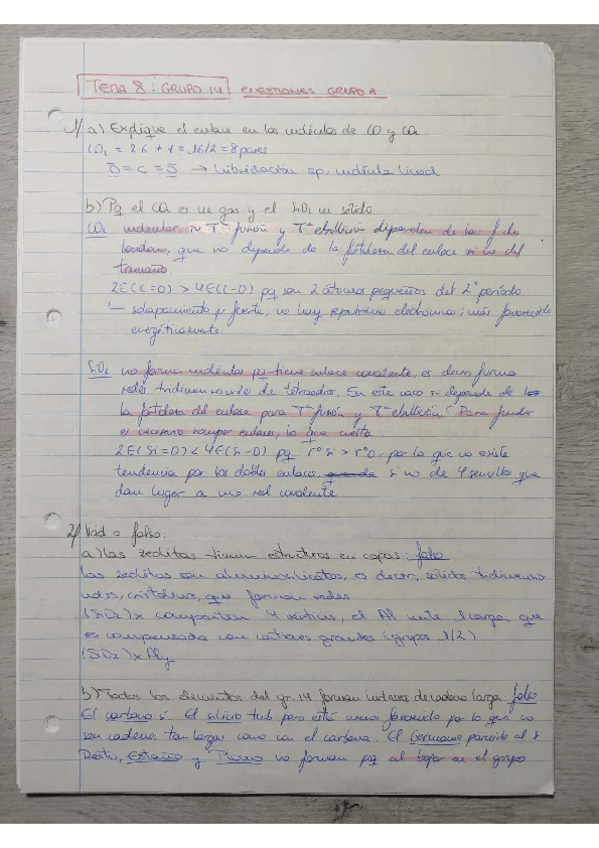 TEMA 8: GRUPO 14 CUESTIONES GRUPO A
1/ a) Explique el enlace en las moléculas de CO y CO₂
CO₂ = 2·6 + 4 = 16/2 = 8 pares
O = C = O → hibridación sp, molécula lineal
b) Pq el CO₂ es un gas y el SiO₂ un sólido
CO₂ molecular, Tª fusión y Tª ebullición dependen de las f. de
london, que no depende de la fortaleza del enlace si no del
tamaño
2E(C=O) > 4E(C-O) pq son 2 átomos pequeños del 2º período
solapamiento fuerte, no hay repulsiones electrónicas; más favorecido
energéticamente
SiO₂ no forma moléculas pq tiene enlace covalente, es decir forma
redes tridimensionales de tetraedros. En este caso si depende de
la fortaleza del enlace para Tª fusión y Tª ebullición. Para fundir
es necesario romper enlaces, lo que cuesta.
2E(Si=O) < 4E(Si-O) pq rº Si > rº O, por lo que no existe
tendencia por los dobles enlaces, si no de 4 sencillos que
dan lugar a una red covalente
2/ Verd o falso:
a) las zeolitas tienen estructuras en capas: falso
las zeolitas son aluminosilicatos, es decir, sólidos tridimensio
nales, cristalinos, que forman redes
(SiO₂)x comparten 4 vértices, el Al mete 1 carga que
es compensada con cationes grandes (grupos 1/2)
(SiO₂)x Aly
b) Todos los elementos del gr. 14 forman hidruros de cadena larga: falso
El carbono si. El silicio tmb pero está menos favorecido por lo que no
son cadenas tan largas como en el carbono. El Germanio parecido al Si
Resto, Estaño y Plomo no forman pq al bajar en el grupo